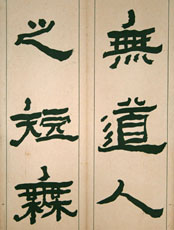 無道人
之短橆